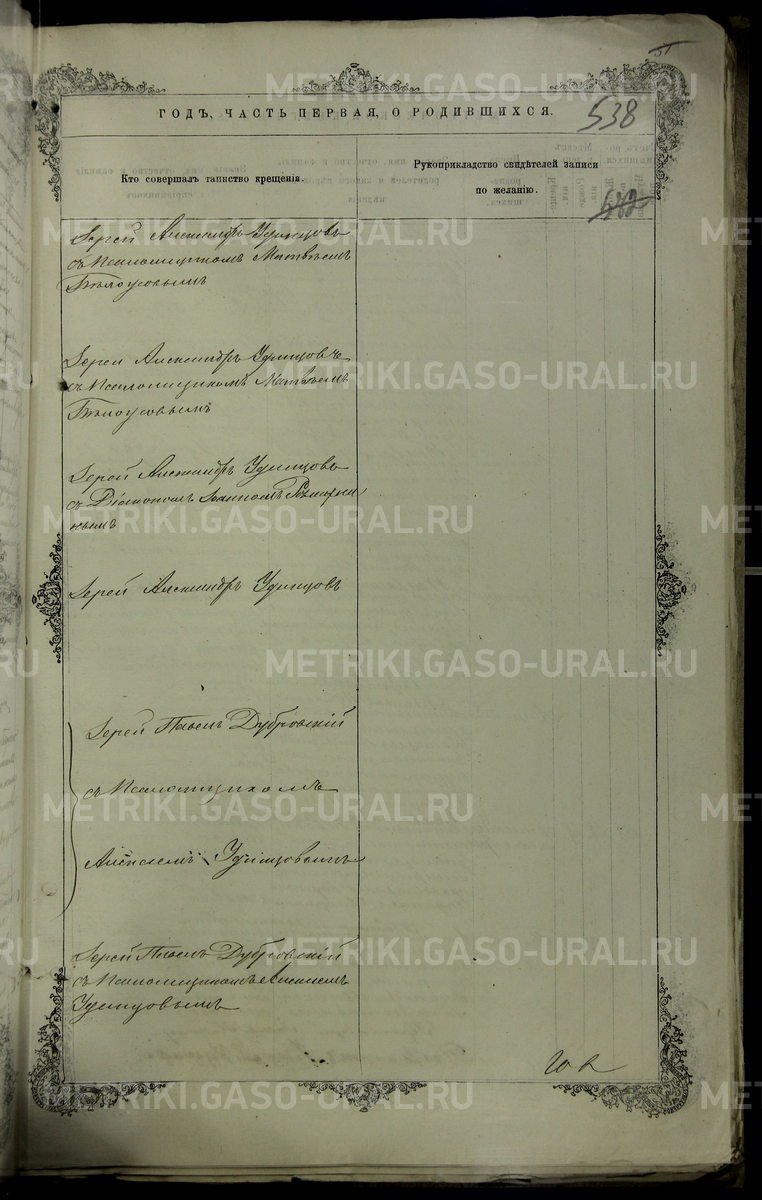 ГОДЪ, ЧАСТЬ ПЕРВАЯ, О РОДИВШИХСЯ.
538
Кто совершалъ таинство крещенія.
Рукоприкладство свидѣтелей записи
по желанію.
Іерей Александръ Удинцовъ
съ Псаломщикомъ Матвѣемъ
Бѣлоусовымъ
Іерей Александръ Удинцовъ
съ Псаломщикомъ Матвѣемъ
Бѣлоусовымъ
Іерей Александръ Удинцовъ
съ Діакономъ Іоанномъ
Іерей Александръ Удинцовъ
Іерей Павелъ Дубровскій
съ Псаломщикомъ
Алексѣемъ Удинцовымъ
Іерей Павелъ Дубровскій
съ Псаломщикомъ Алексѣемъ
Удинцовымъ
METRIKI.GASO-URAL.RU